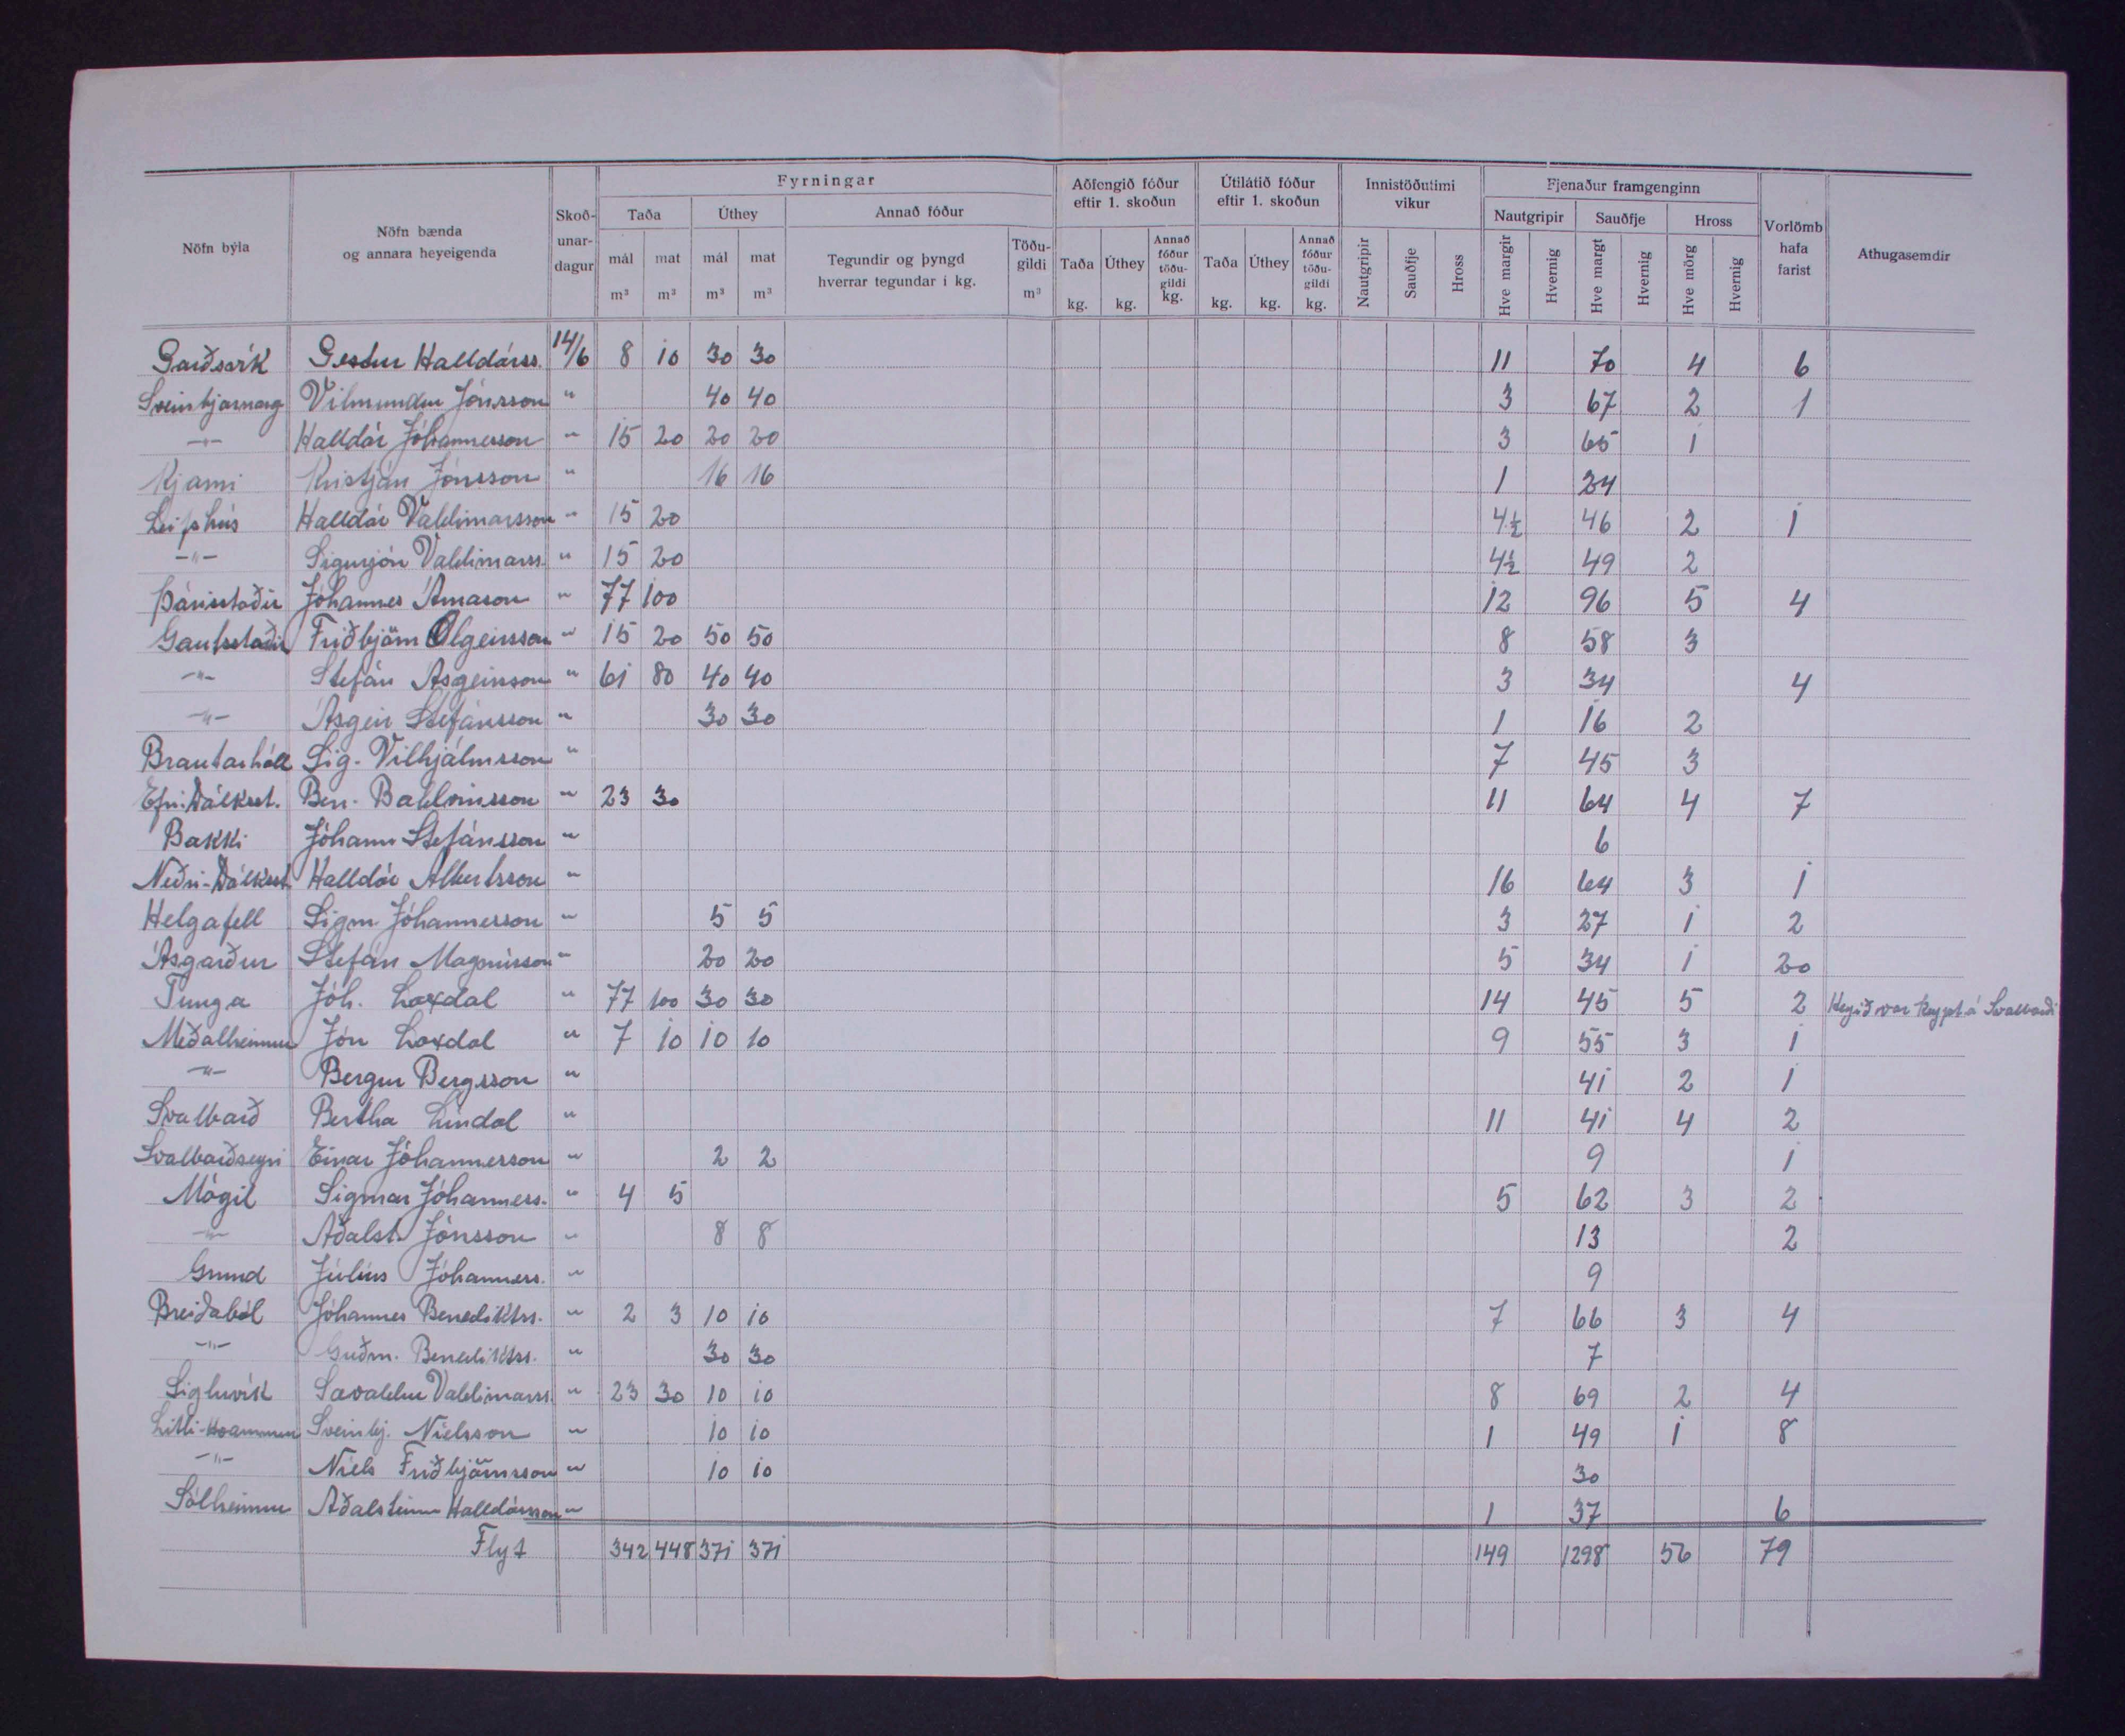 Fyrningar
Aðfengið fóður eftir 1. skoðun
Útilátið fóður eftir 1. skoðun
Innistöðutimi vikur
Fjenaður framgenginn
Nöfn býla
Nöfn bænda og annara heyeigenda
Skoð-unar-dagur
Taða Úthey Annað fóður
Nautgripir Sauðfje Hross
Vorlömb hafa farist
Athugasemdir
mál m³ mat m³ mál m³ mat m³
Tegundir og þyngd hverrar tegundar í kg.
Töðu-gildi m³
Taða kg. Úthey kg. Annað fóður töðu-gildi kg.
Taða kg. Úthey kg. Annað fóður töðu-gildi kg.
Nautgripir Sauðfje Hross
Hve margir Hvernig Hve margt Hvernig Hve mörg Hvernig
Garðsvík Gestur Halldórss. 14/6 8 10 30 30 11 70 4 6
Sveinbjarnarg Vilmundur Jónsson " 40 40 3 67 2 1
-"- Halldór Jóhannesson " 15 20 20 20 3 65 1
Kjarni Kristján Jónsson " 16 16 1 24
Leifshús Halldór Valdimarsson " 15 20 4½ 46 2 1
-"- Sigurjón Valdimarss. " 15 20 4½ 49 2
Þórisstaðir Jóhannes Árnason " 77 100 12 96 5 4
Gautsstaðir Friðbjörn Olgeirsson " 15 20 50 50 8 58 3
-"- Stefán Ásgeirsson " 61 80 40 40 3 34 4
-"- Ásgeir Stefánsson " 30 30 1 16 2
Brautarhóll Sig. Vilhjálmsson " 7 45 3
Efri Dálkset. Ben. Baldvinsson " 23 30 11 64 4 7
Bakki Jóhann Stefánsson " 6
Neðri-Dálksst. Halldór Albertsson " 16 64 3 1
Helgafell Sigm Jóhannesson " 5 5 3 27 1 2
Ásgarður Stefán Magnússon " 20 20 5 34 1 20
Tunga Jóh. Laxdal " 77 100 30 30 14 45 5 2 Heyið var keypt á Svalbarði
Meðalheimur Jón Laxdal " 7 10 10 10 9 55 3 1
-"- Bergur Bergsson " 41 2 1
Svalbarð Bertha Líndal " 11 41 4 2
Svalbarðseyri Einar Jóhannesson " 2 2 9 1
Mógil Sigmar Jóhanness. " 4 5 5 62 3 2
-"- Aðalst. Jónsson " 8 8 13 2
Grund Júlíus Jóhanness. " 9
Breiðaból Jóhannes Benediktss. " 2 3 10 10 7 66 3 4
-"- Guðm. Benediktss. " 30 30 7
Sigluvík Sævaldur Valdimarss. " 23 30 10 10 8 69 2 4
Litli-Hvammur Sveinbj. Níelsson " 10 10 1 49 1 8
-"- Níels Friðbjörnsson " 10 10 30
Sólheimur Aðalsteinn Halldórsson " 1 37 6
Flyt 342 448 371 371 149 1298 56 79